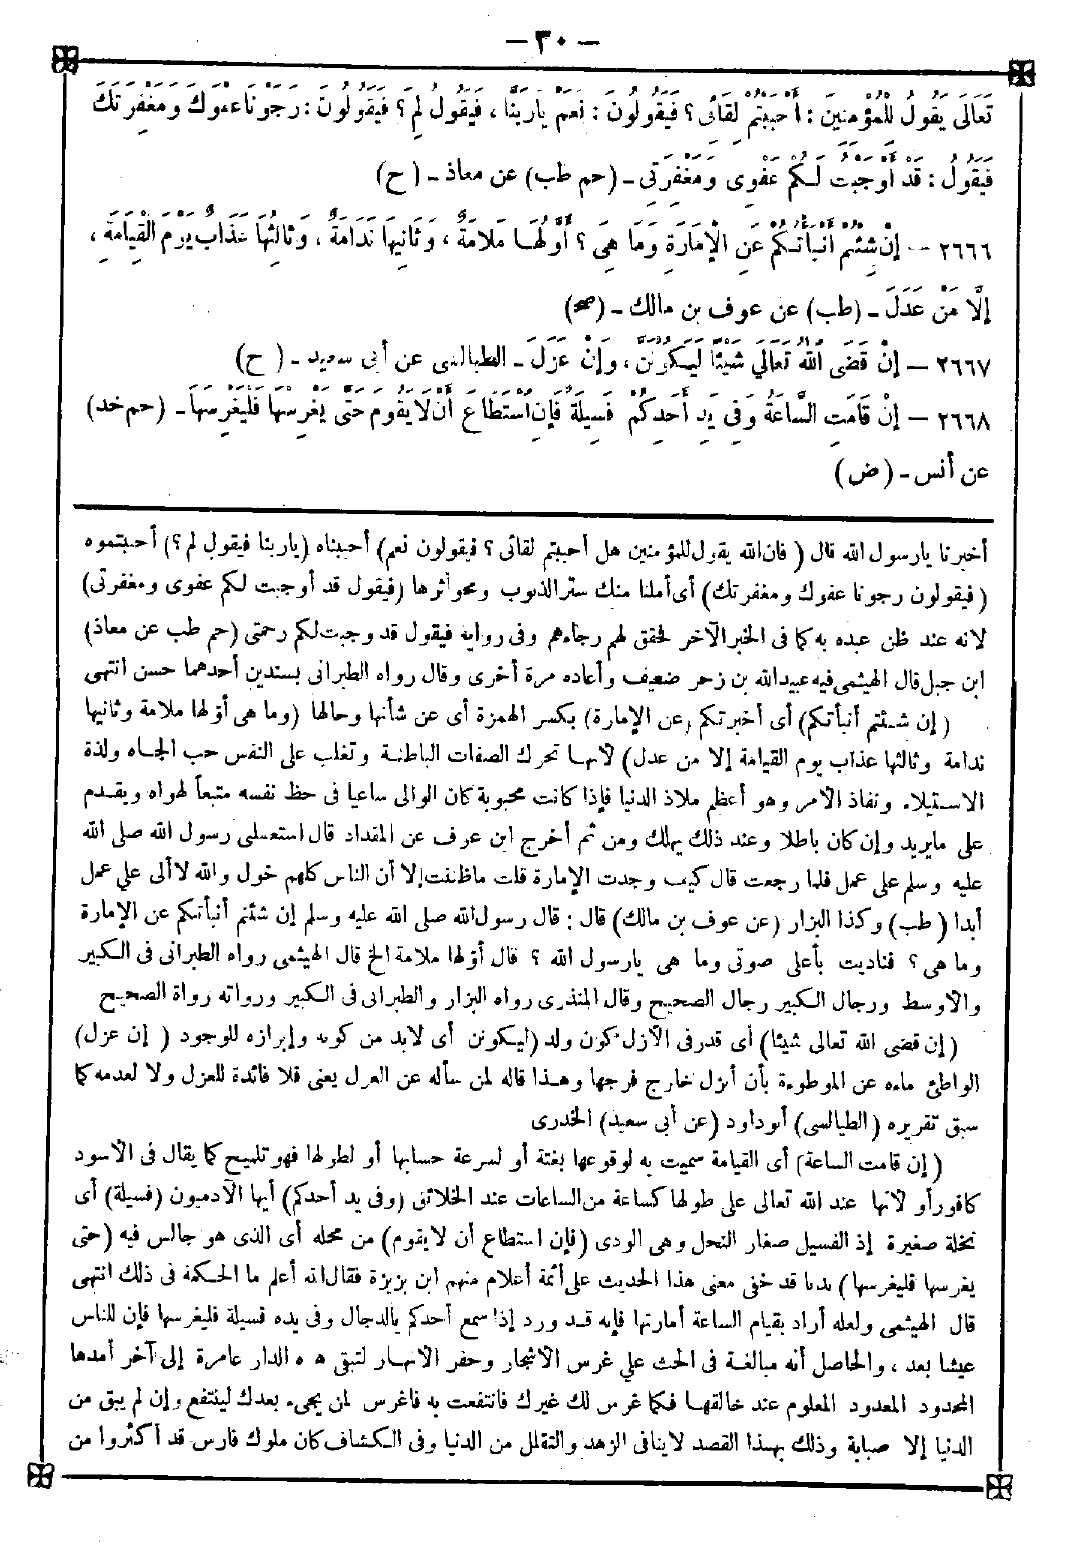 – ٣٠ –
تَعَالَى يَقُولُ لِلْمُؤْمِنِينَ : أَحْبَبْتُمْ لِقَائِى ؟ فَيَقُولُونَ : نَعَمْ يَارَبَّنَا ، فَيَقُولُ لِمَ ؟ فَيَقُولُونَ : رَجَوْنَا عَفْوَكَ وَمَغْفِرَتَكَ
فَيَقُولُ : قَدْ أَوْجَبْتُ لَكُمْ عَفْوِى وَمَغْفِرَتِى ـ (حم طب) عن معاذ ـ (ح)
٢٦٦٦ – إِنْ شِئْتُمْ أَنْبَأْتُكُمْ عَنِ الْإِمَارَةِ وَمَا هِىَ ؟ أَوَّلُهَا مَلَامَةٌ ، وَثَانِيهَا نَدَامَةٌ ، وَثَالِثُهَا عَذَابٌ يَوْمَ الْقِيَامَةِ ،
إِلَّا مَنْ عَدَلَ ـ (طب) عن عوف بن مالك ـ (صح)
٢٦٦٧ – إِنْ قَضَى اللهُ تَعَالَى شَيْئًا لَيَكُونَنَّ ، وَإِنْ عَزَلَ ـ الطيالسى عن أبى سعيد ـ (ح)
٢٦٦٨ – إِنْ قَامَتِ السَّاعَةُ وَفِى يَدِ أَحَدِكُمْ فَسِيلَةٌ فَإِنِ اسْتَطَاعَ أَنْ لَا يَقُومَ حَتَّى يَغْرِسَهَا فَلْيَغْرِسْهَا ـ (حم خد)
عن أنس ـ (ض)
أخبرنا يارسول الله قال (فان الله يقول للمؤمنين هل أحببتم لقائى ؟ فيقولون نعم) أحببناه (ياربنا فيقول لم ؟) أحببتموه
(فيقولون رجونا عفوك ومغفرتك) أى أملنا منك ستر الذنوب ومحو أثرها (فيقول قد أوجبت لكم عفوى ومغفرتى)
لانه عند ظن عبده به كما فى الخبر الآخر لحقق لهم رجاءهم وفى رواية فيقول قد وجبت لكم رحمتى (حم طب عن معاذ)
ابن جبل قال الهيثمى فيه عبيدالله بن زحر ضعيف وأعاده مرة أخرى وقال رواه الطبرانى بسندين أحدهما حسن انتهى
(إن شئتم أنبأتكم) أى أخبرتكم (عن الإمارة) بكسر الهمزة أى عن شأنها وحالها (وما هى أولها ملامة وثانيها
ندامة وثالثها عذاب يوم القيامة إلا من عدل) لأنها تحرك الصفات الباطنة وتغلب على النفس حب الجاه ولذة
الاستيلاء ونفاذ الأمر وهو أعظم ملاذ الدنيا فإذا كانت محبوبة كان الوالى ساعيا فى حظ نفسه متبعاً لهواه ويقدم
على مايريد وإن كان باطلا وعند ذلك يهلك ومن ثم أخرج ابن عوف عن المقداد قال استعملنى رسول الله صلى الله
عليه وسلم على عمل فلما رجعت قال كيف وجدت الإمارة قلت ماظننت إلا أن الناس كلهم خول والله لا ألى على عمل
أبدا (طب) وكذا البزار (عن عوف بن مالك) قال : قال رسول الله صلى الله عليه وسلم إن شئتم أنبأتكم عن الإمارة
وما هى ؟ فناديت بأعلى صوتى وما هى يارسول الله ؟ قال أولها ملامة الخ قال الهيثمى رواه الطبرانى فى الكبير
والأوسط ورجال الكبير رجال الصحيح وقال المنذرى رواه البزار والطبرانى فى الكبير ورواته رواة الصحيح
(إن قضى الله تعالى شيئا) أى قدر فى الأزل كون ولد (ليكونن أى لابد من كونه وإبرازه للوجود (إن عزل)
الواطئ ماءه عن الموطوءة بأن أنزل خارج فرجها وهذا قاله لمن سأله عن العزل يعنى فلا فائدة للعزل ولا لعدمه كما
سبق تقريره (الطيالسى) أبوداود (عن أبى سعيد) الخدرى
(إن قامت الساعة) أى القيامة سميت به لوقوعها بغتة أو لسرعة حسابها أو لطولها فهو تلميح كما يقال فى الأسود
كافور أو لأنها عند الله تعالى على طولها كساعة من الساعات عند الخلائق (وفى يد أحدكم) أيها الآدميون (فسيلة) أى
نخلة صغيرة إذ الفسيل صغار النخل وهى الودى (فإن استطاع أن لايقوم) من محله أى الذى هو جالس فيه (حتى
يغرسها فليغرسها) ندبا قد خفى معنى هذا الحديث على أئمة أعلام منهم ابن بزيزة فقال الله أعلم ما الحكمة فى ذلك انتهى
قال الهيثمى ولعله أراد بقيام الساعة أمارتها فإنه قد ورد إذا سمع أحدكم بالدجال وفى يده فسيلة فليغرسها فإن للناس
عيشا بعد ، والحاصل أنه مبالغة فى الحث على غرس الأشجار وحفر الأنهار لتبقى هذه الدار عامرة إلى آخر أمدها
المحدود المعدود المعلوم عند خالقها فكما غرس لك غيرك فانتفعت به فاغرس لمن يجىء بعدك لينتفع وإن لم يبق من
الدنيا إلا صبابة وذلك بهذا القصد لاينافى الزهد والتقلل من الدنيا وفى الكشاف كان ملوك فارس قد أكثروا من